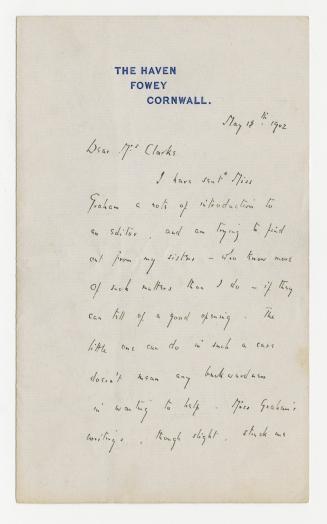 THE HAVEN
FOWEY
CORNWALL.
May 18th. 1902
Dear Mrs Clarke
I have sent Miss
Graham a note of introduction to
an editor, and am trying to find
out from my sisters – who know more
of such matters than I do – if they
can tell of a good opening. The
little one can do in such a case
doesn't mean any backwardness
in wanting to help. Miss Graham's
writings, though slight, struck me